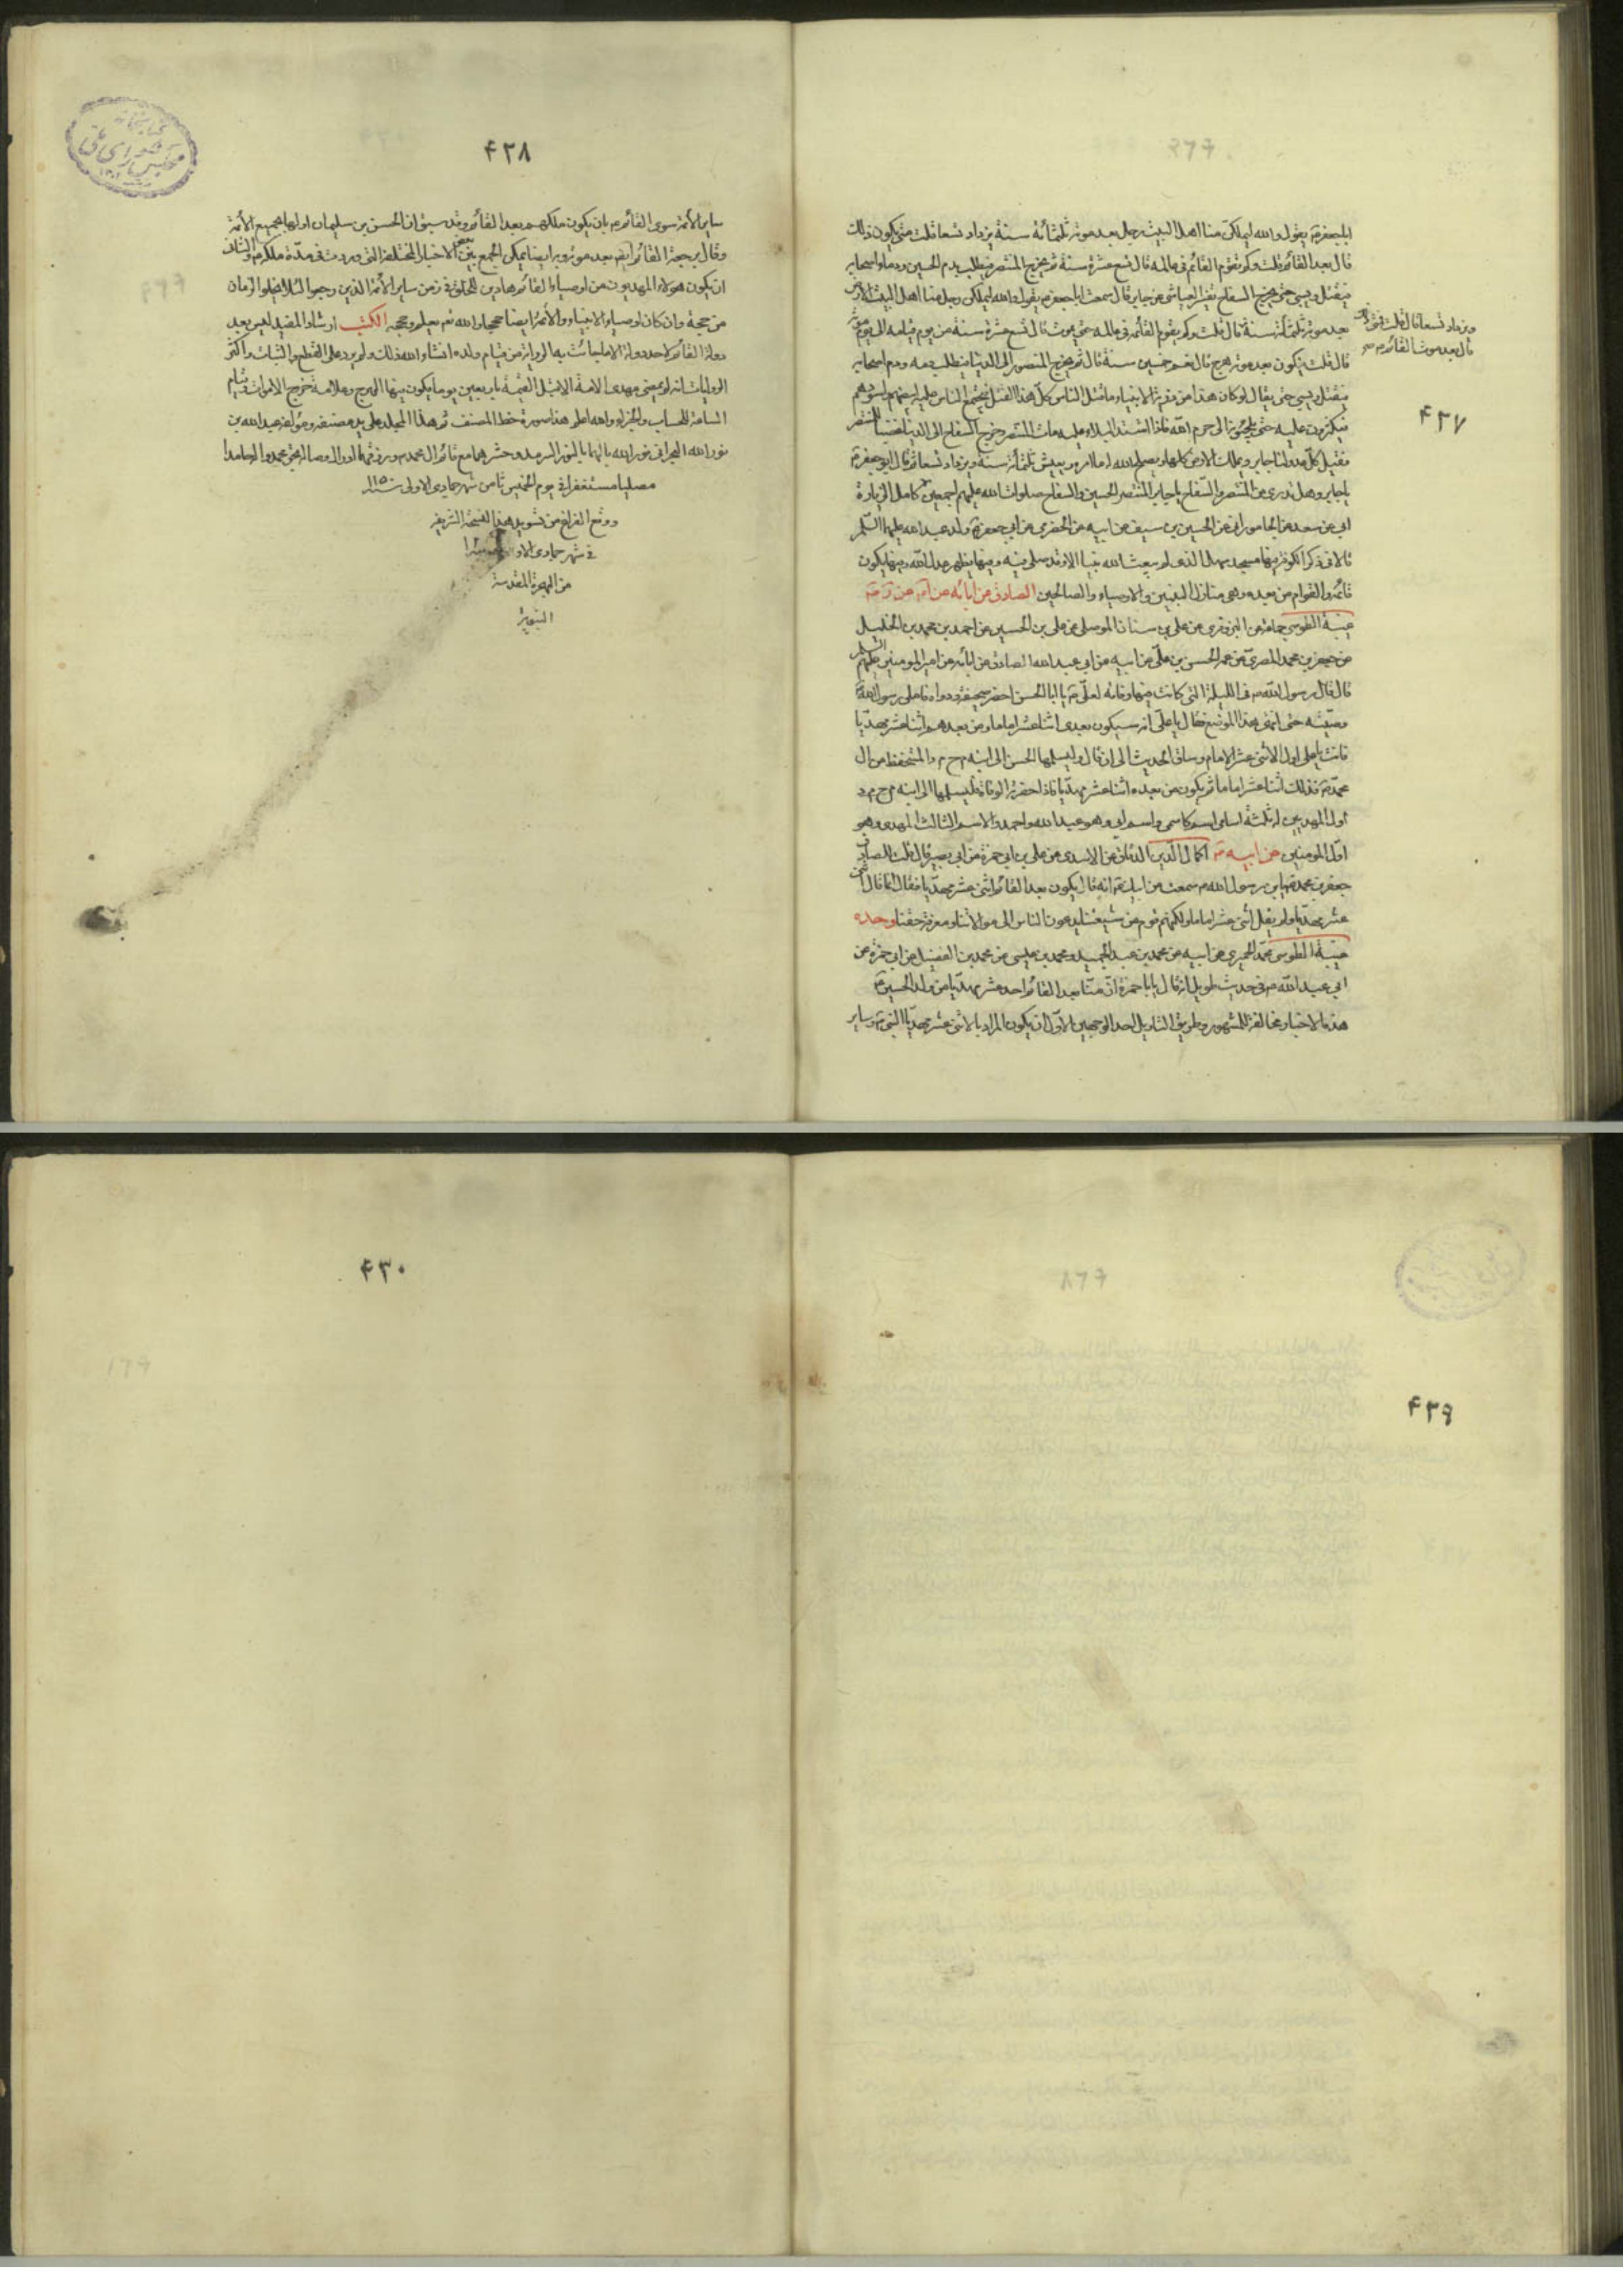 ابا جعفر ع يقول والله ليملكن منا اهل البيت رجل بعد موته ثلثمائة سنة يزداد تسعا قلت متى يكون ذلك
قال بعد القائم قلت وكم يقوم القائم في عالمه قال تسع عشرة سنة ثم يخرج المنتصر فيطلب بدم الحسين ودماء اصحابه
فيقتل ويسبي حتى يخرج السفاح تفسير العياشي عن جابر قال سمعت ابا جعفر ع يقول والله ليملكن رجل منا اهل البيت الارض
بعد موته ثلثمائة سنة قال قلت وكم يقوم القائم في عالمه حتى يموت قال تسع عشرة سنة من يوم قيامه الى يوم موته
ويزداد تسعا قال قلت فمتى ذلك
قال بعد موت القائم ع صح
۴۳۷
قال قلت فيكون بعد موته هرج قال نعم خمسين سنة قال ثم يخرج المنصور الى الدنيا فيطلب دمه ودم اصحابه
فيقتل ويسبي حتى يقال لو كان هذا من ذرية الانبياء ما قتل الناس كل هذا القتل فيجتمع الناس عليه ابيضهم واسودهم
فيكثرون عليه حتى يلجئونه الى حرم الله فاذا اشتد البلاء عليه مات المنتصر وخرج السفاح الى الدنيا غضبا للمنتصر
فيقتل كل عدو لنا جابر ويملك الارض كلها ويصلح الله له امره ويعيش ثلثمائة سنة ويزداد تسعا ثم قال ابو جعفر ع
يا جابر وهل تدري من المنتصر والسفاح يا جابر المنتصر الحسين والسفاح صلوات الله عليهم اجمعين كامل الزيارة
ابي عن سعد عن الجاموراني عن الحسين بن سيف عن ابيه عن الحضرمي عن ابي جعفر ع وابي عبد الله عليهما السلم
قالا في ذكر الكوفة فيها مسجد سهيل الذي لم يبعث الله نبيا الا وقد صلى فيه وفيها يظهر عدل الله وفيها يكون
قائمه والقوام من بعده وهي منازل النبيين والاوصياء والصالحين الصادق عن ابائه عن
غيبة الطوسي جماعة عن البزوفري عن علي بن سنان الموصلي عن علي بن الحسين عن احمد بن محمد بن الخليل
عن جعفر بن محمد المصري عن عمه الحسن بن علي عن ابيه عن ابي عبد الله الصادق عن ابائه عن امير المؤمنين عليهم السلم
قال قال رسول الله ص في الليلة التي كانت فيها وفاته لعلي ع يا ابا الحسن احضر صحيفة ودواة فاملى رسول الله ص
وصيته حتى انتهى بهذا الموضع فقال يا علي انه سيكون بعدي اثنا عشر اماما ومن بعدهم اثنا عشر مهديا
فانت يا علي اول الاثنى عشر الامام وساق الحديث الى ان قال وليسلمها الحسن الى ابنه م ح م د المستحفظ من ال
محمد ص فذلك اثنا عشر اماما ثم يكون من بعده اثنا عشر مهديا فاذا حضرته الوفاة فليسلمها الى ابنه
اول المهديين له ثلثة اسامي اسم كاسمي واسم ابي وهو عبد الله واحمد والاسم الثالث المهدي وهو
اول المؤمنين عن ابيه ع اكمال الدين الدقاق عن الاسدي عن علي بن ابي حمزة عن ابي بصير قال قلت للصادق
جعفر بن محمد ع يابن رسول الله ص سمعت من ابيك ع انه قال يكون بعد القائم اثنى عشر مهديا فقال انما قال اثنى
عشر مهديا ولم يقل اثنى عشر اماما ولكنهم قوم من شيعتنا يدعون الناس الى موالاتنا ومعرفة حقنا وحده
غيبة الطوسي محمد الحميري عن ابيه عن محمد بن عبد الحميد ومحمد بن عيسى عن محمد بن الفضيل عن ابي حمزة عن
ابي عبد الله ع في حديث طويل انه قال يا با حمزة ان منا بعد القائم احد عشر مهديا من ولد الحسين ع
هذه الاخبار مخالفة للمشهور وطريق التاويل احد الوجهين الاول ان يكون المراد بالاثنى عشر مهديا النبي ص وساير
۴۳۸
ساير الائمة سوى القائم ع بان يكون ملكهم بعد القائم وقد سبق ان الحسن بن سليمان اولها بجميع الائمة
وقال برجعة القائم ايضا بعد موته وبه ايضا يمكن الجمع بين بعض الاخبار المختلفة التي وردت في مدة ملكه ع والثاني
ان يكون هؤلاء المهديون من اوصياء القائم هادين للخلق في زمن ساير الائمة الذين رجعوا لئلا يخلوا الزمان
من حجة وان كان اوصياء الانبياء والائمة ايضا حججا والله نعم يعلم وحججه الكتب ارشاد المفيد ليس بعد
دولة القائم لاحد دولة الا ما جائت به الرواية من قيام ولده انشاء الله ذلك ولم يرد على القطع والثبات واكثر
الروايات انه لو يمضي مهدي الامة الا قبل القيمة باربعين يوما يكون فيها الهرج وعلامة خروج الاموات وقيام
الساعة للحساب والجزاء والله اعلم هذا صورة خط المصنف تم هذا المجلد على يد مصنفه ومؤلفه عبد الله بن
نور الله البحراني نور الله بالهما بالنور السرمد وحشرهما مع قائم ال محمد ورزقهما الوصال بحق محمد وال حامدا
مصليا مستغفرا في يوم الخميس ثامن شهر جمادي الاولى سنة ۱۱۵۰
ووقع الفراغ من تسويد هذه النسخة الشريفة
في شهر جمادي الاو
من الهجرة المقدسة
النبوية
۴۳۹
۴۳۰